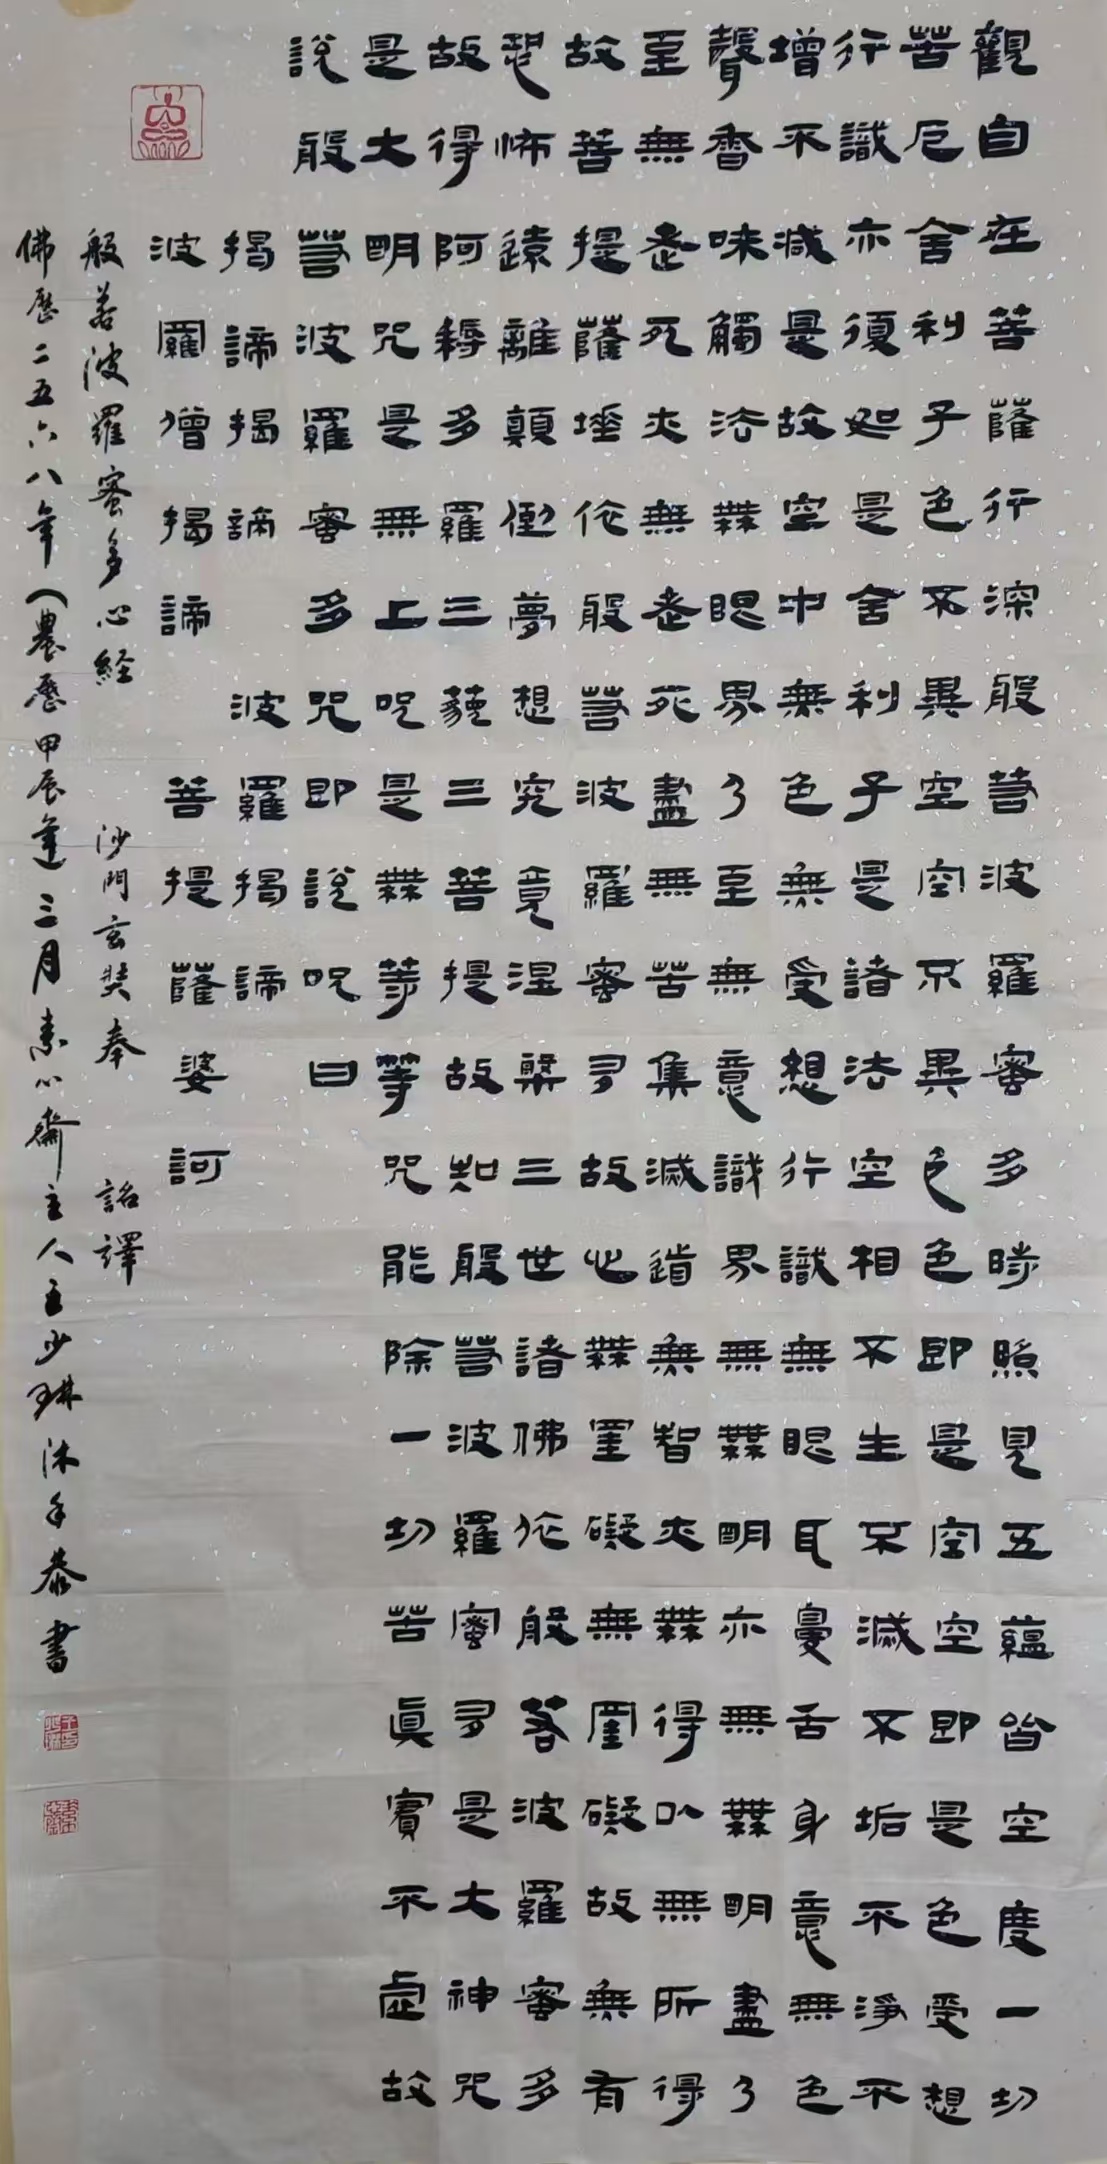 觀自在菩薩行深般若波羅蜜多時照見五蘊皆空度一切
苦厄舍利子色不異空空不異色色即是空空即是色受想
行識亦復如是舍利子是諸法空相不生不滅不垢不淨不
增不減是故空中無色無受想行識無眼耳鼻舌身意無色
聲香味觸法無眼界乃至無意識界無無明亦無無明盡乃
至無老死亦無老死盡無苦集滅道無智亦無得以無所得
故菩提薩埵依般若波羅蜜多故心無罣礙無罣礙故無有
恐怖遠離顛倒夢想究竟涅槃三世諸佛依般若波羅蜜多
故得阿耨多羅三藐三菩提故知般若波羅蜜多是大神咒
是大明咒是無上咒是無等等咒能除一切苦真實不虛故
說般若波羅蜜多咒即說咒曰
揭諦揭諦 波羅揭諦
波羅僧揭諦 菩提薩婆訶
般若波羅蜜多心経 沙門玄奘奉 詔譯
佛歷二五六八年(農歷甲辰年三月素心齋主人王少琳沐手恭書